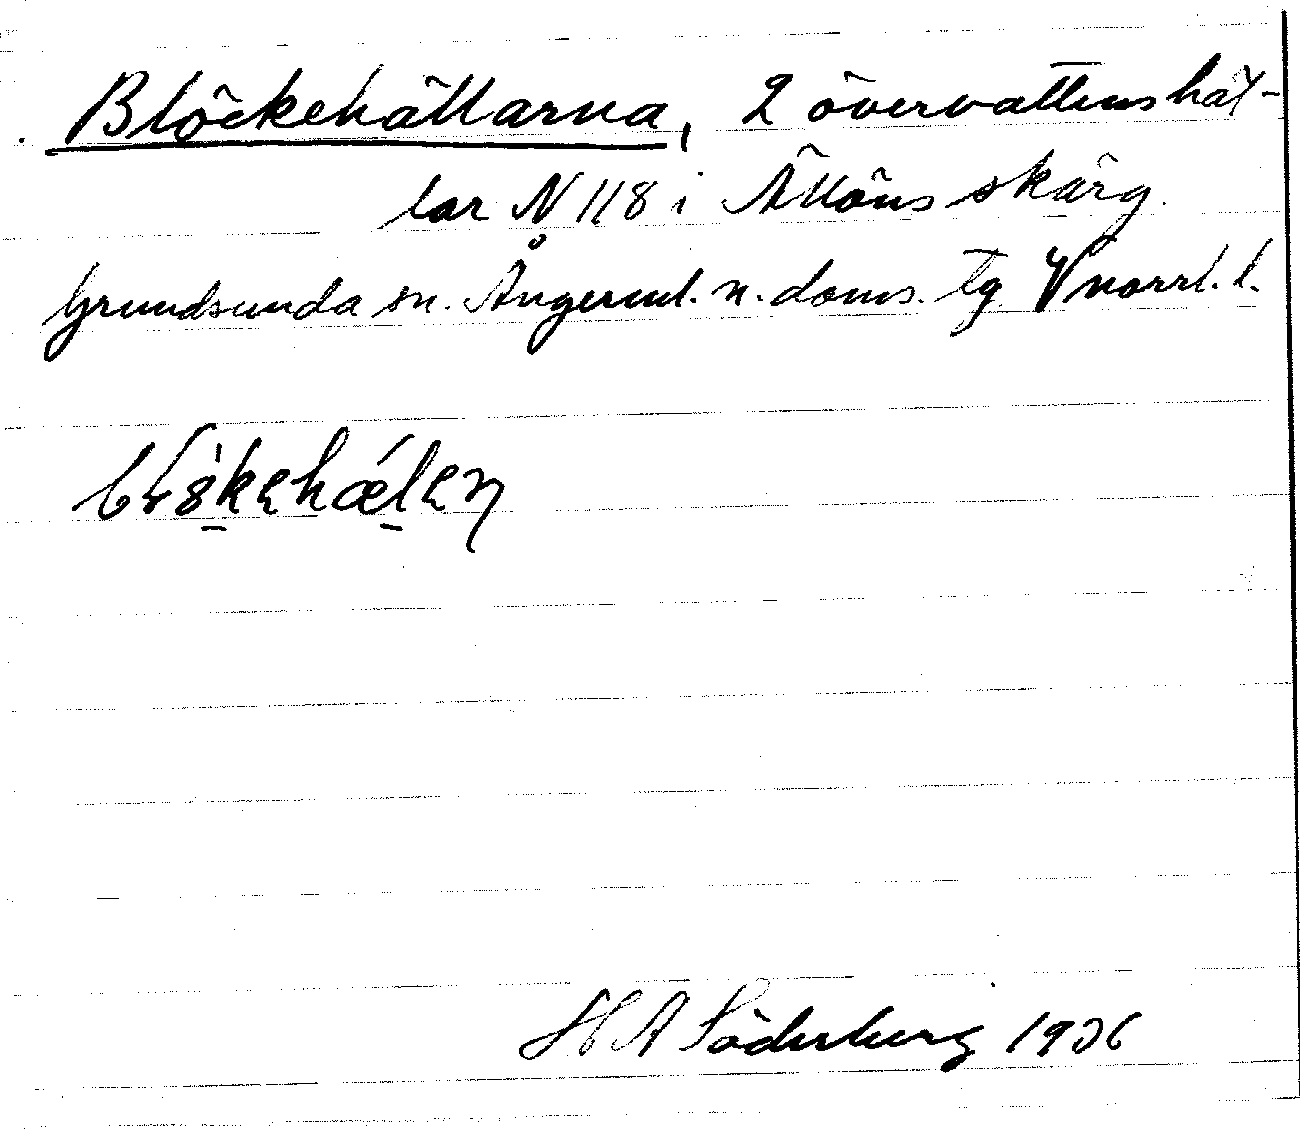 Blöckehällarna, 2 övervattenshäl-
lar N 118 i Ällöns skärg.
Grundsunda sn. Ångerml. n. doms. tg Vnorrl. l.
H A Söderberg 1936